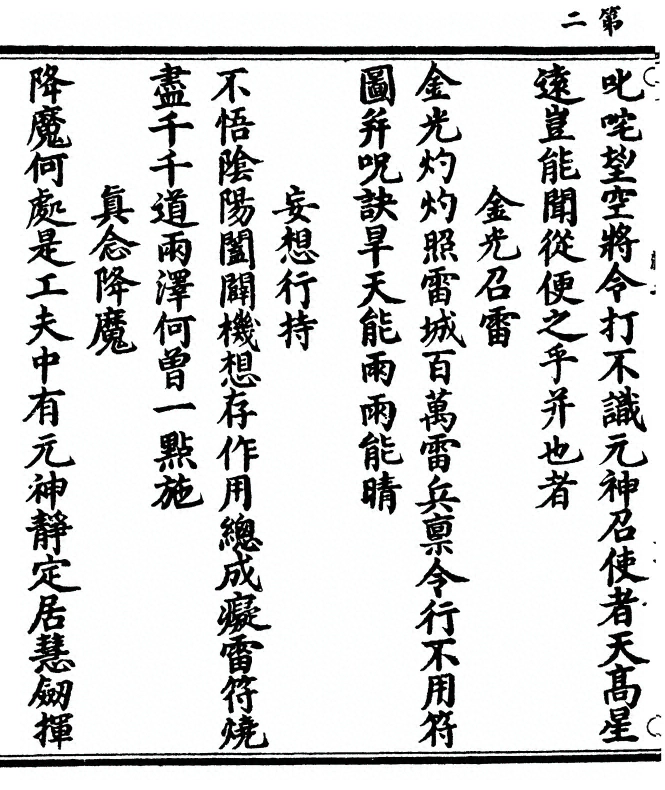 第二
叱咤埿空將令打不識元神召使者天高星
遠豈能聞從便之乎并也者
金光召雷
金光灼灼照雷城百萬雷兵禀令行不用符
圖并呪訣旱天能雨雨能晴
妄想行持
不悟陰陽闔闢機想存作用總成癡雷符燒
盡千千道雨澤何曾一點施
真念降魔
降魔何處是工夫中有元神靜定居慧劒揮